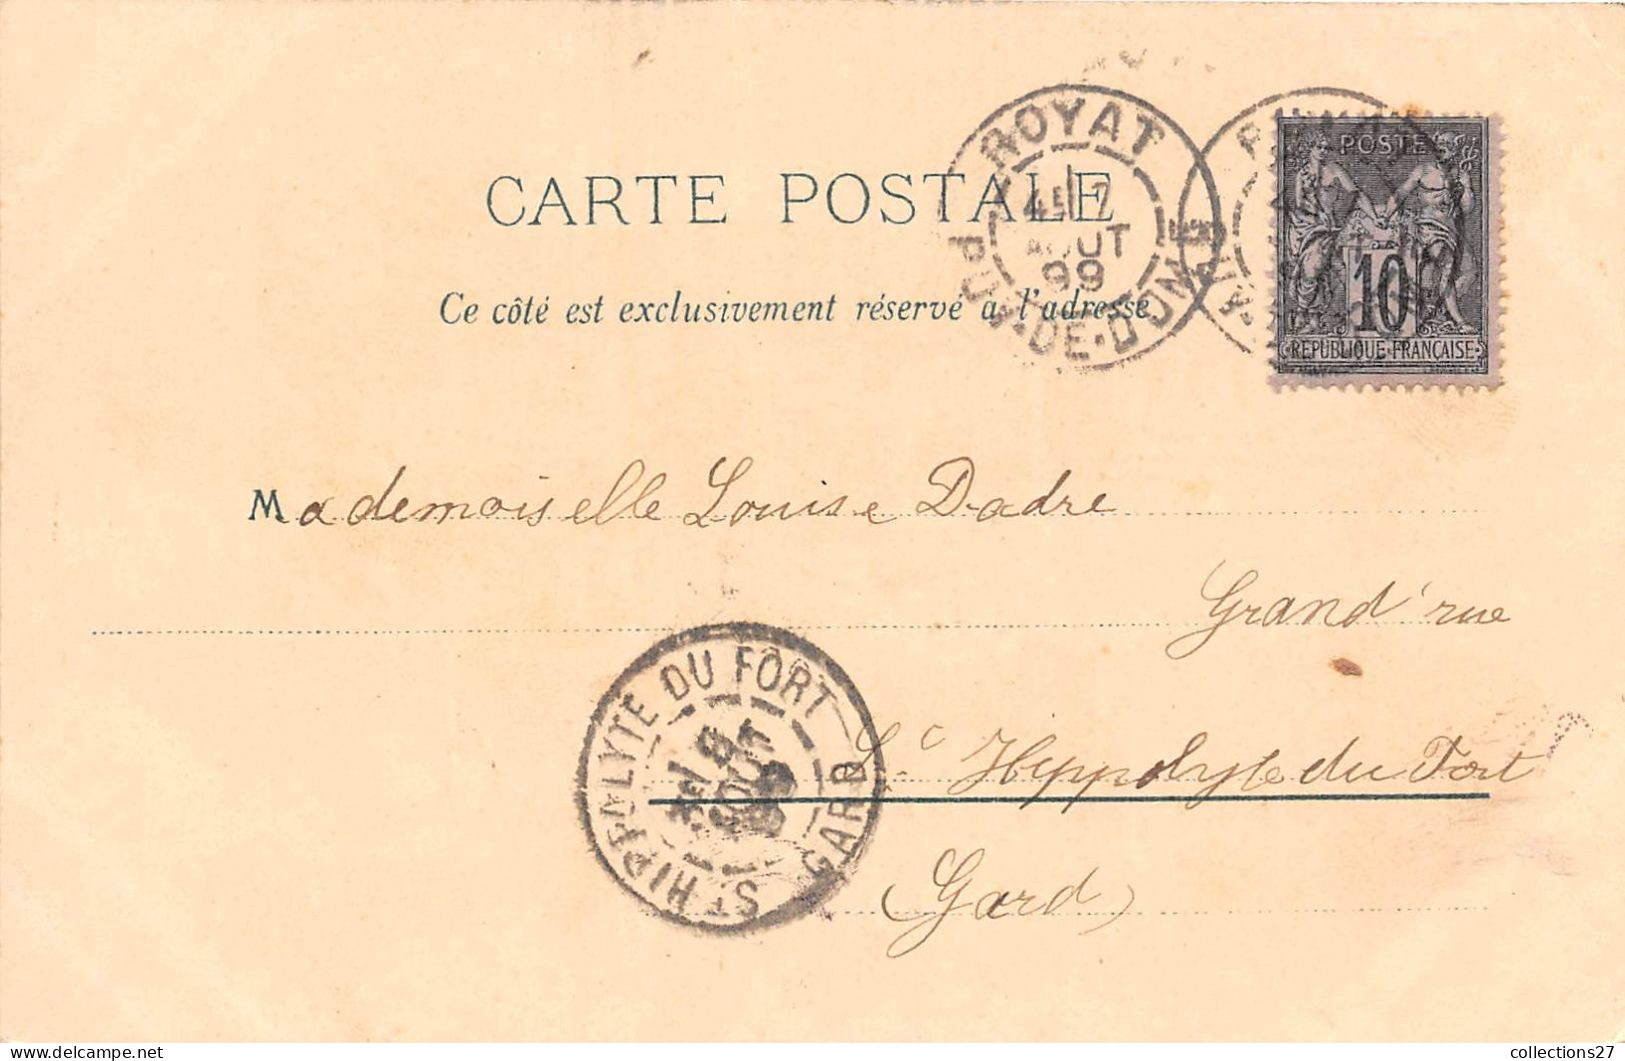 ROYAT
4E / 7
AOUT
99
PUY-DE-DOME
POSTE
10
REPUBLIQUE FRANÇAISE
CARTE POSTALE
Ce côté est exclusivement réservé à l'adresse
Mademoiselle Louise Dadre
Grand'rue
St Hippolyte du Fort
(Gard)
ST HIPPOLYTE DU FORT
8
AOUT
99
GARD
collections27